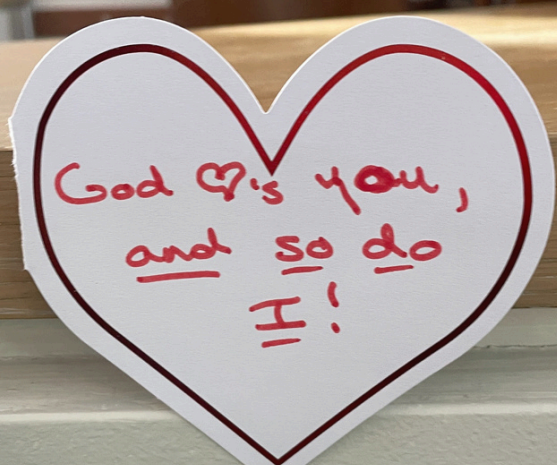 God ♡'s you,
and so do
I!